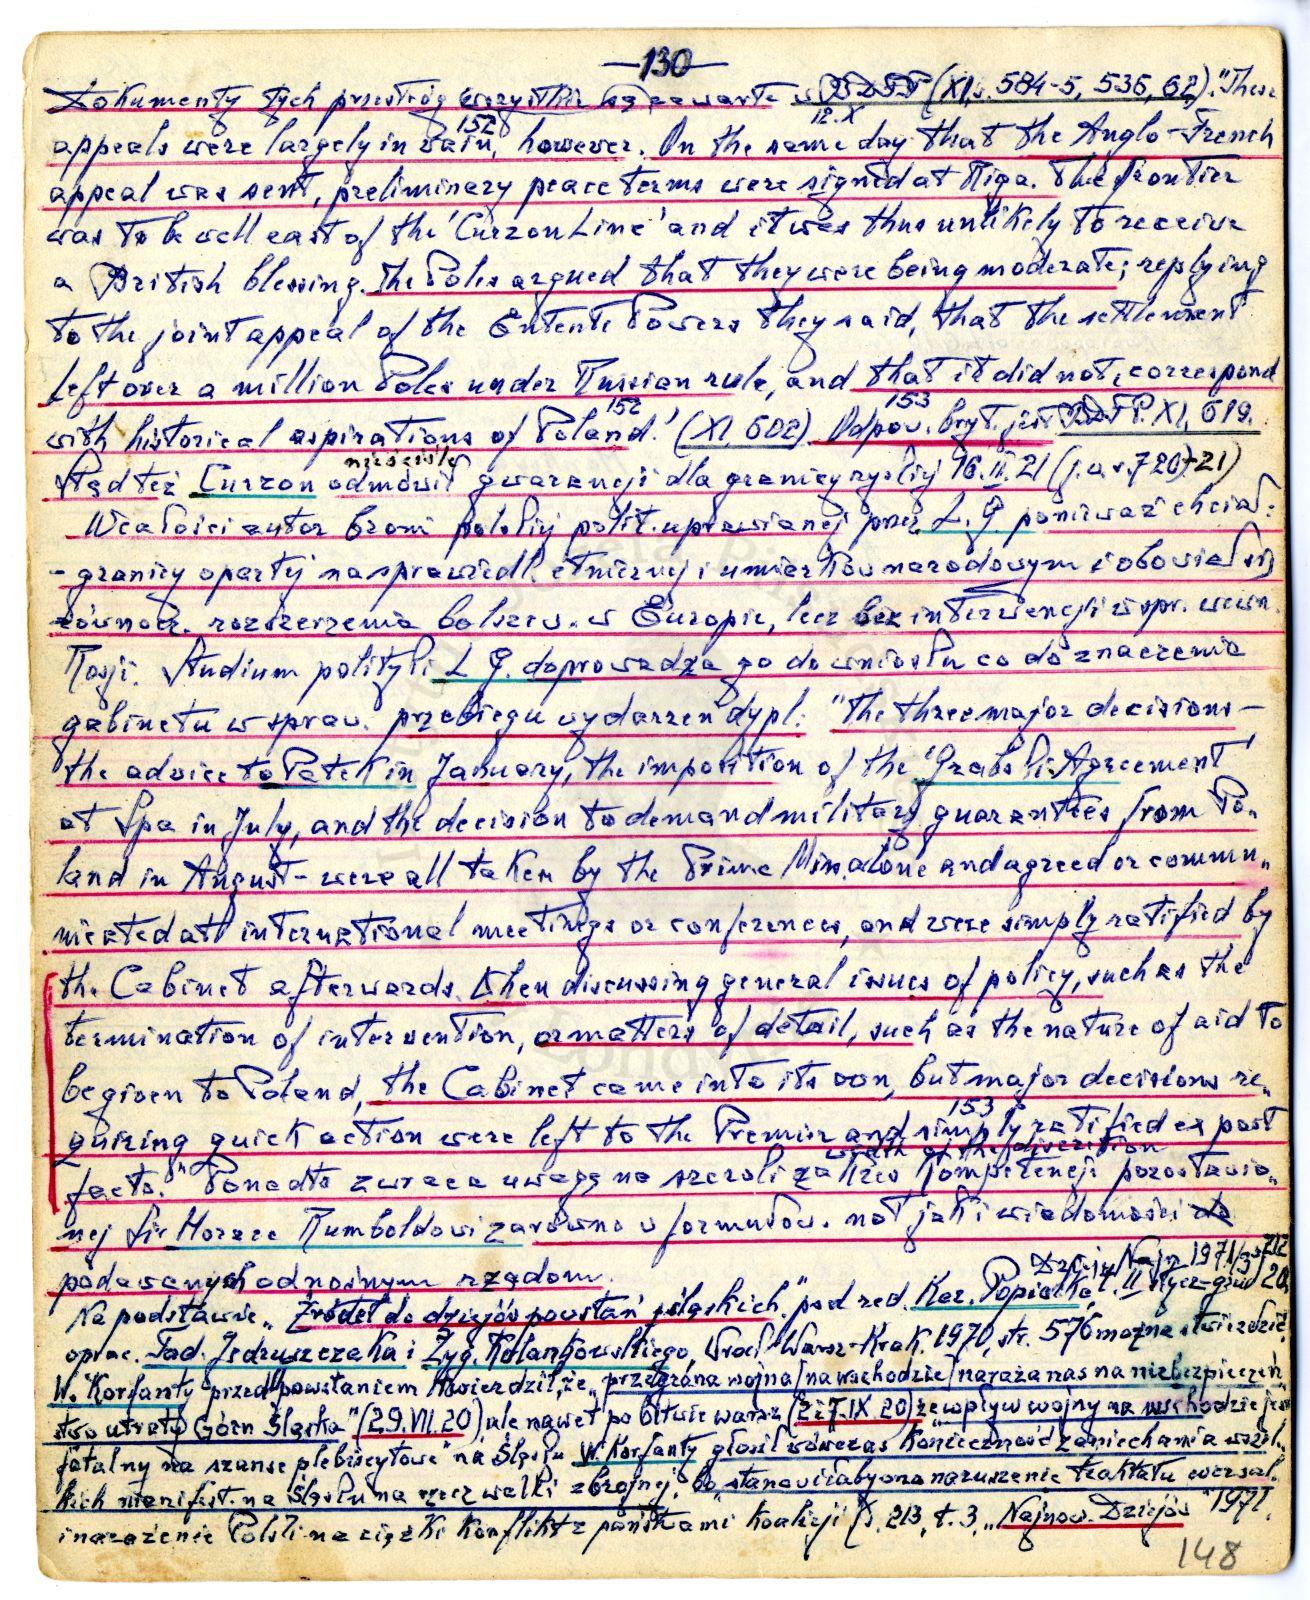 —130—
Dokumenty tych przestróg wszystkie są zawarte w DBFP (XI, s. 584-5, 536, 62). "These
152 12.X
appeals were largely in vain, however. On the same day that the Anglo-French
appeal was sent, preliminary peace terms were signed at Riga. The frontier
was to be well east of the 'Curzon Line' and it was thus unlikely to receive
a British blessing. The Poles argued that they were being moderate; replying
to the joint appeal of the Entente Powers they said, that the settlement
left over a million Poles under Russian rule, and that it did not "correspond
152 153
with historical aspirations of Poland.' (XI 602) Odpow. bryt. jest DBFP. XI, 619.
nieściśle
Stąd też Curzon odmówił gwarancji dla granicy ryskiej 16.III.21 (j.a. s. 720-21)
W całości autor broni polskiej polit. uprawianej przez L. G ponieważ chciał:
- granicy opartej na sprawiedl. etnicznej i umiarkow narodowym i obawiał się
równocz. rozszerzenia bolszew. w Europie, lecz bez interwencji w spr. wewn.
Rosji. Studium polityki L G. doprowadza go do wniosku co do znaczenia
gabinetu w spraw. przebiegu wydarzeń dypl: "The three major decisions –
the advice to Patek in January, the imposition of the 'Grabski Agreement'
at Spa in July, and the decision to demand military guarantees from Po-
land in August - were all taken by the Prime Min. alone and agreed or commu„
nicated at international meetings or conferences, and were simply ratified by
the Cabinet afterwards. When discussing general issues of policy, such as the
termination of intervention, or matters of detail, such as the nature of aid to
be given to Poland, the Cabinet came into its own, but major decisions re„
153
quiring quick action were left to the Premier and simply ratified ex post
width of the discretion
facto." Ponadto zwraca uwagę na szeroki zakres kompetencji pozostawio„
nej Sir Horace Rumboldowi zarówno w formułow. not jak i wiadomości
podawanych odnośnym rządom.
Dzieje Najn 1971/3 s 212
Na podstawie „Źródeł do dziejów powstań śląskich," pod red. Kaz. Popiołka, t. II stycz-grud 20,
oprac. Tad. Jędruszczaka i Zyg. Kolankowskiego, Wrocł-Warsz-Krak. 1970, str. 576 można stwierdzić
W. Korfanty przed powstaniem twierdził, że „przegrana wojna [na wschodzie] naraża nas na niebezpieczeń„
stwo utraty Górn Śląska" (29.VII.20), ale nawet po bitwie warsz (2 i 7.IX 20) że „wpływ wojny na wschodzie jest
fatalny na szanse plebiscytowe" na Śląsku W. Korfanty głosił wówczas konieczność zaniechania wszel„
kich manifest. na Śląsku na rzecz walki zbrojnej, bo „stanowiłaby ona naruszenie traktatu wersal.
i narażenie Polski na ciężki konflikt z państwami koalicji (s. 213, t. 3, „Najnow. Dziejów" 1971.
148